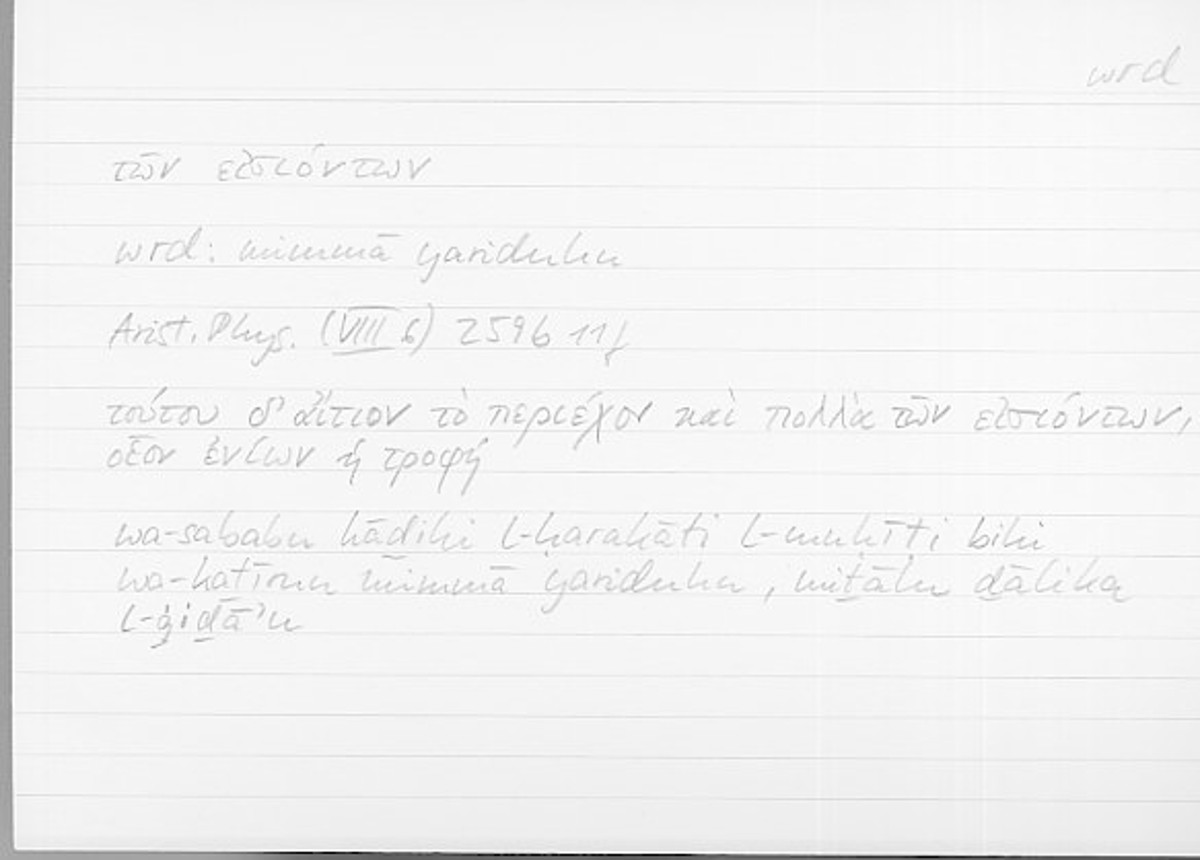 wrd
τῶν εἰσιόντων
wrd: mimmā yariduhu
Arist. Phys. (VIII 6) 259b 11f
τούτου δ' αἴτιον τὸ περιέχον καὶ πολλὰ τῶν εἰσιόντων,
οἷον ἐνίων ἡ τροφή
wa-sababu hāḏihi l-ḥarakāti l-muḥīṭi bihi
wa-kaṯīrun mimmā yariduhu, miṯālu ḏālika
l-ġiḏāʾu